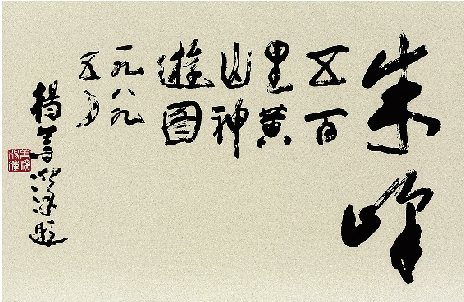 朱峰
五百
里黄
山神
遊图
一九八九
五月
楊善深题